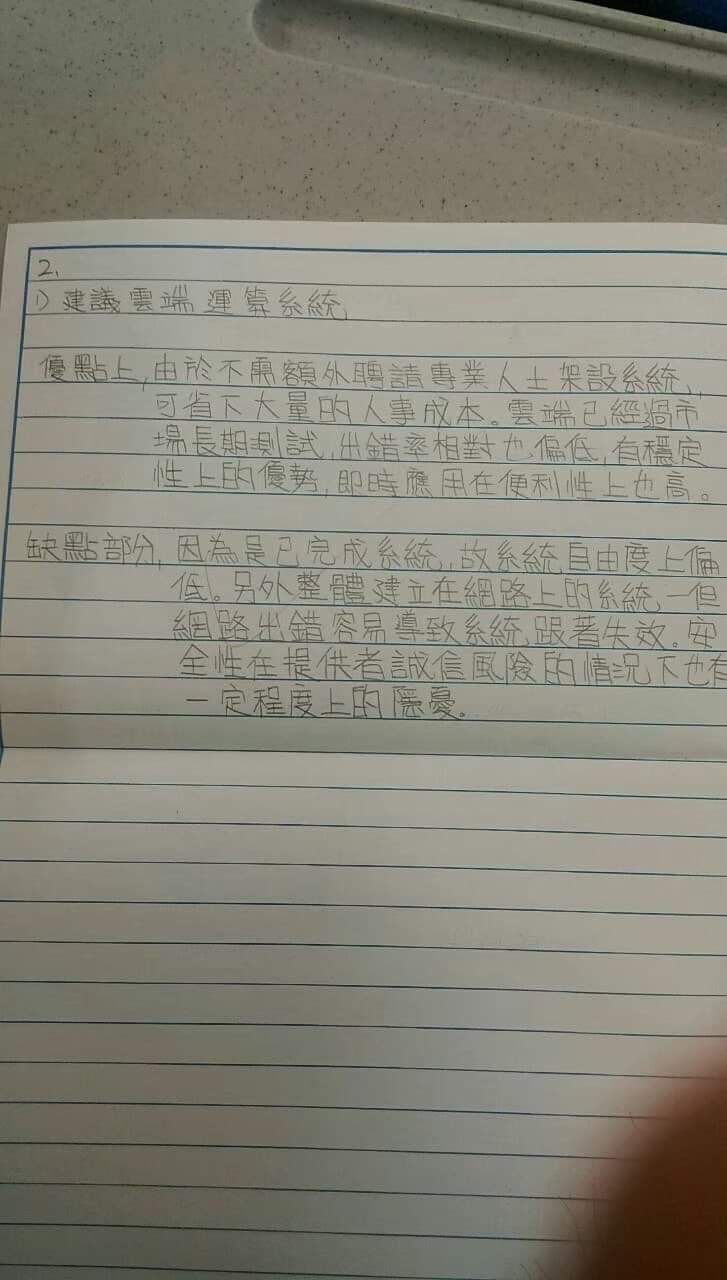 2.
1) 建議雲端運算系統
優點上,由於不需額外聘請專業人士架設系統,
可省下大量的人事成本。雲端已經過市
場長期測試,出錯率相對也偏低,有穩定
性上的優勢,即時應用在便利性上也高。
缺點部分,因為是已完成系統,故系統自由度上偏
低。另外整體建立在網路上的系統一但
網路出錯容易導致系統跟著失效。安
全性在提供者誠信風險的情況下也有
一定程度上的隱憂。